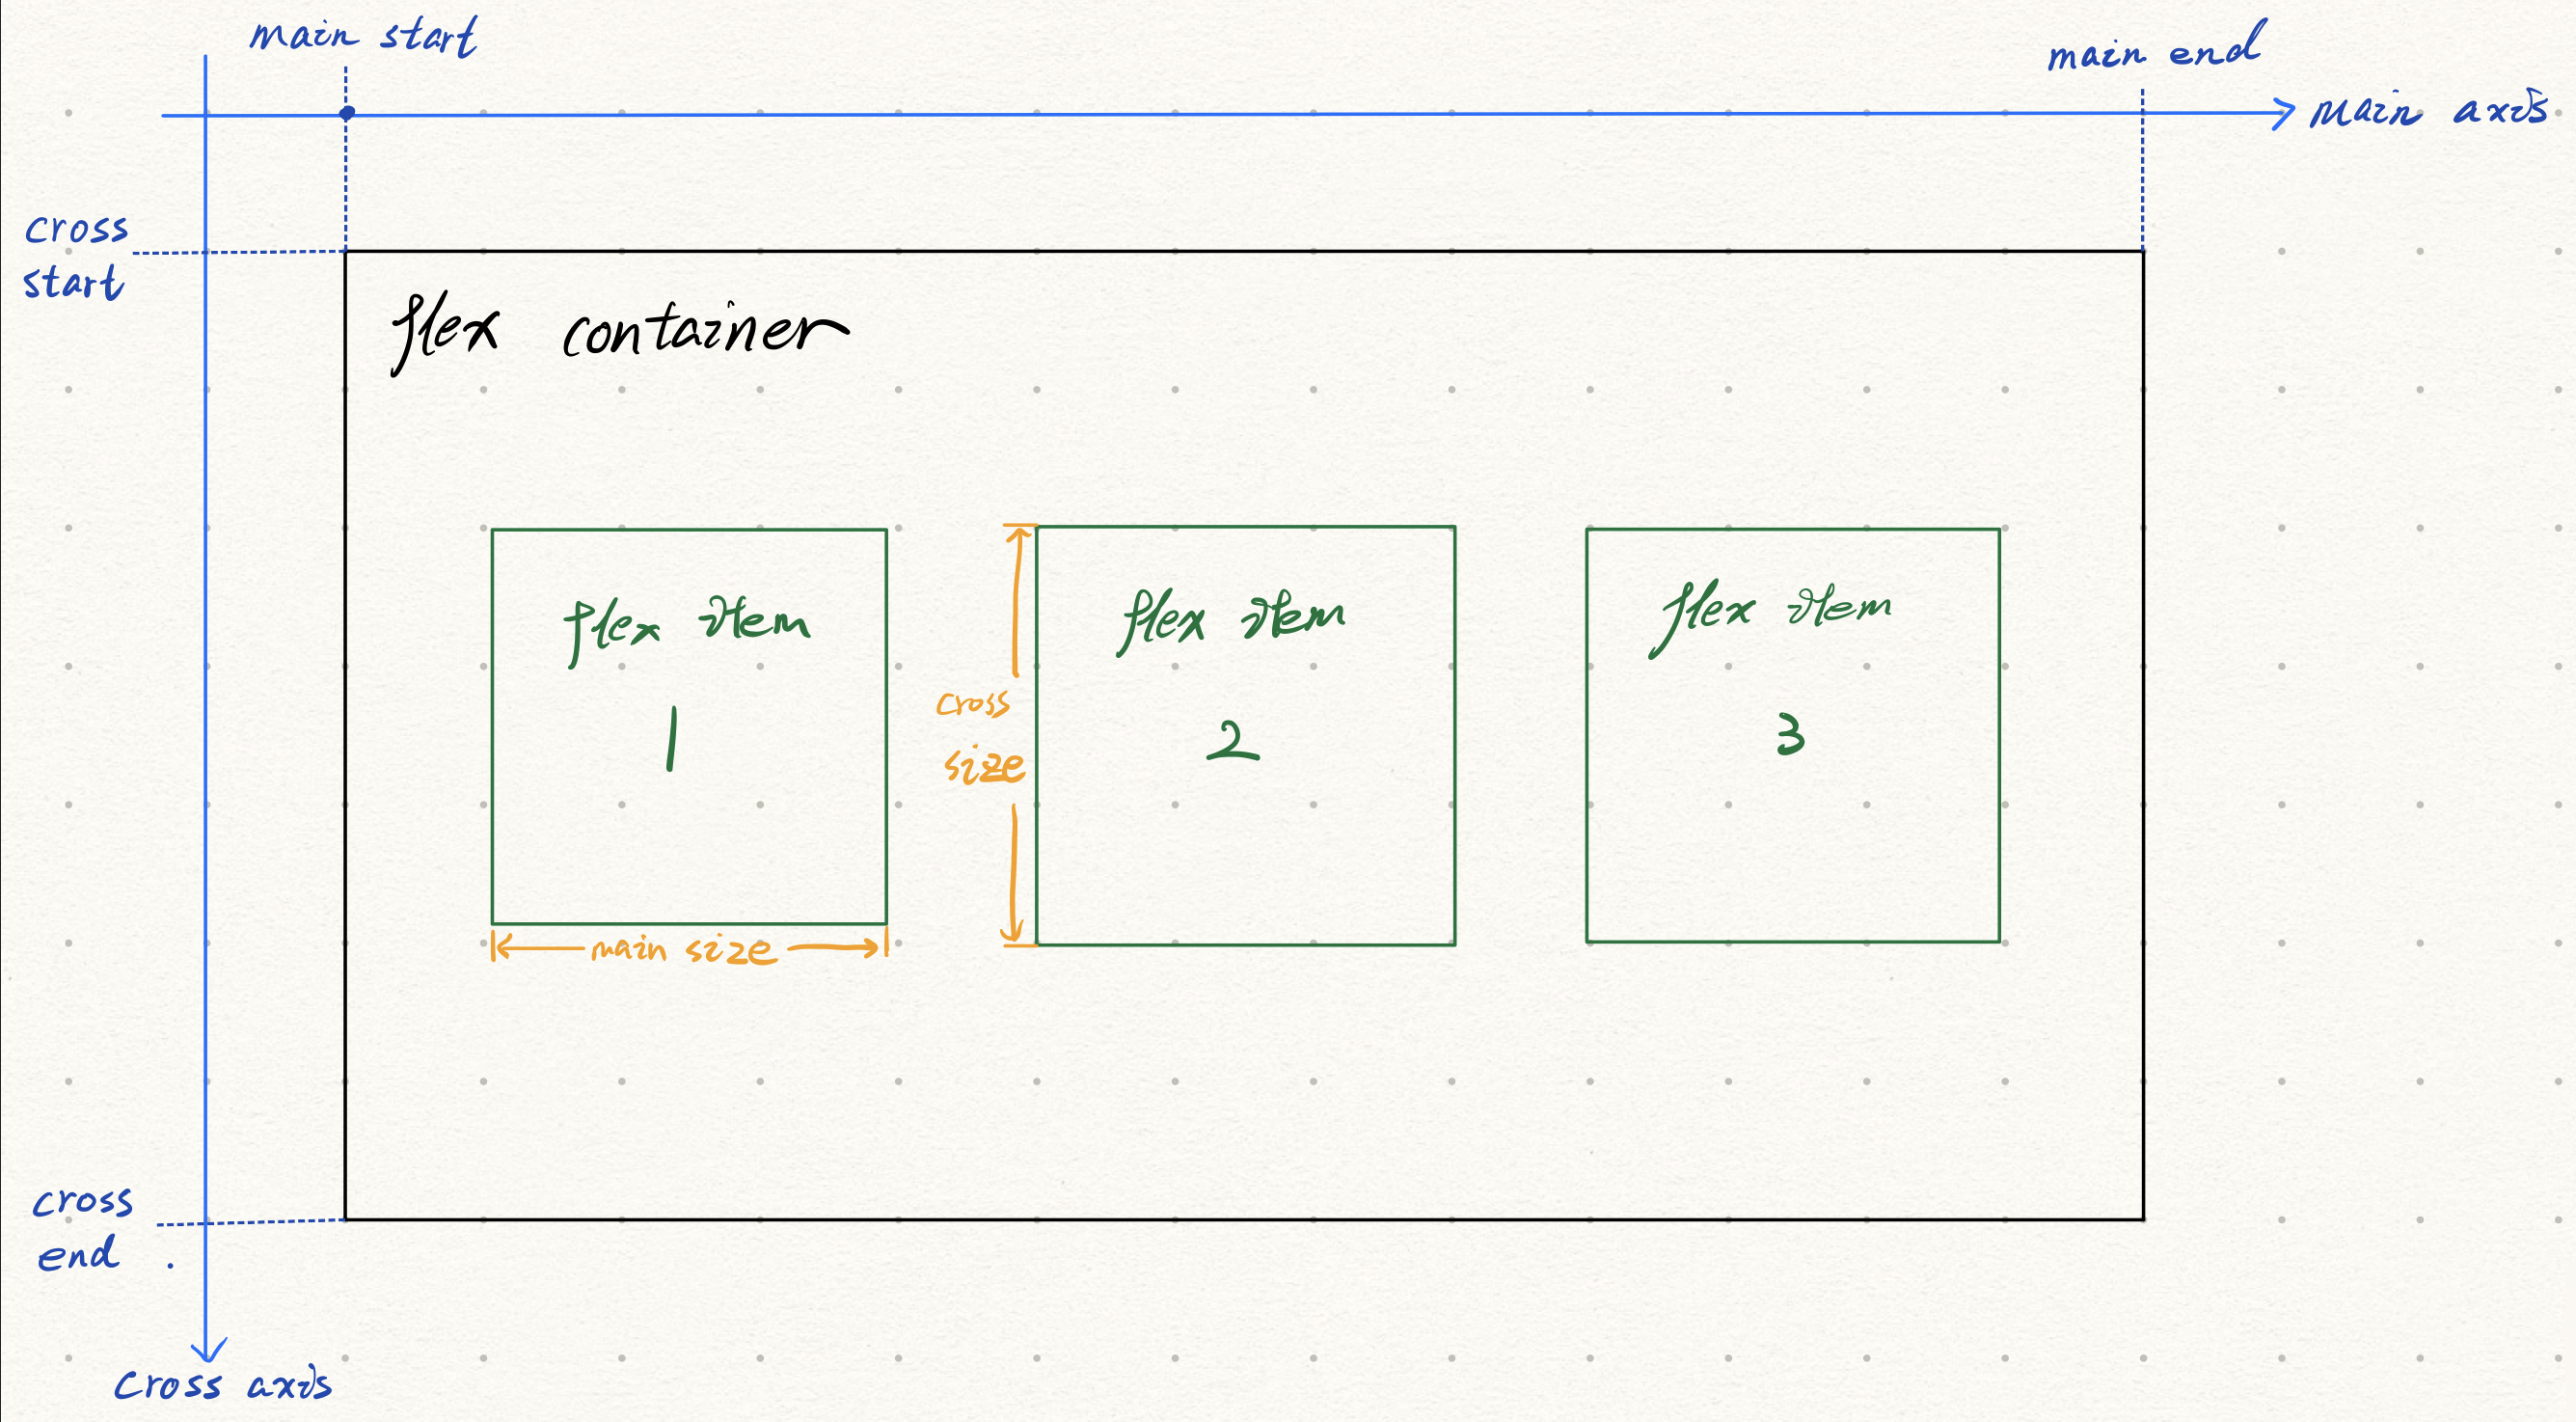 main start
main end
main axis
cross
start
flex container
flex item
1
flex item
2
flex item
3
cross
size
main size
cross
end .
Cross axis